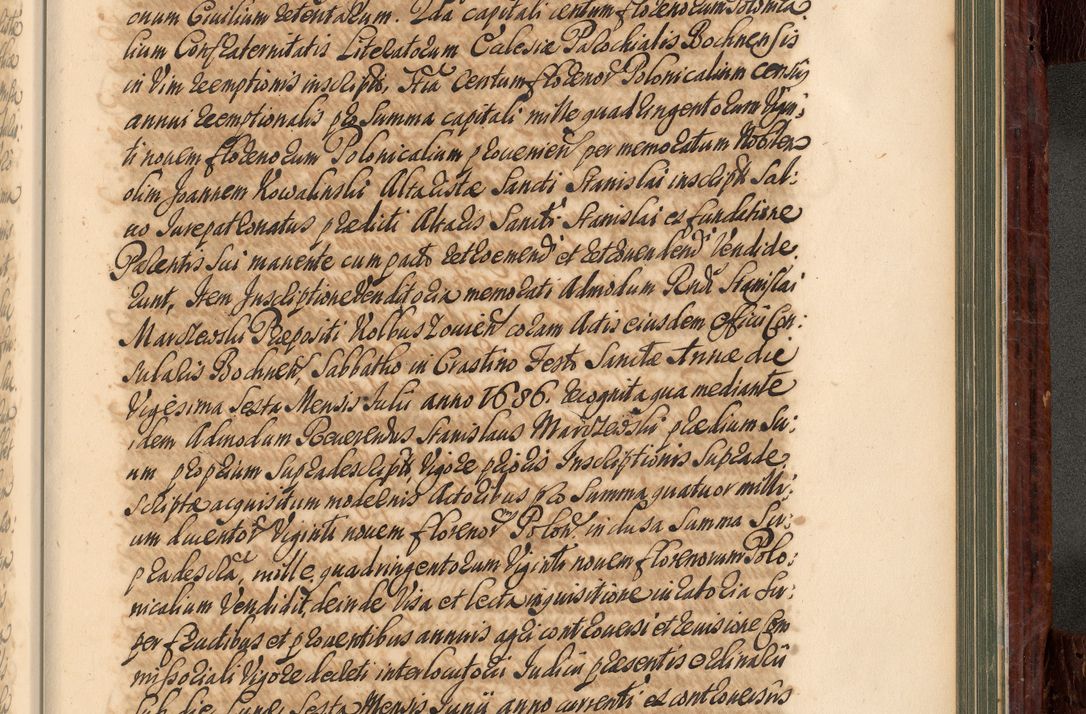 onum Civilium retentarum. Ita capitali centum florenorum Polonica
lium Confraternitatis Literatorum Ecclesiæ Parochialis Bochnensis
in vim reemptionis inscripto, Itia Centum florenor Polonicalium census
annui reemptionalis pro Summa capitali mille quadringentorum Vigin:
ti novem florenorum Polonicalium provenien per memoratum Nobilem
olim Joannem Kowalinski Altaristæ Sancti Stanislai inscript Sal:
vo Jurepatronatus præditi Altaris Sancti Stanislai ex fundatione
Parentis Sui manente cum pacto retroemendi et retrovendendi Vendide:
runt, Item Inscriptione Venditoria memorati Admodum Rndi Stanislai
Marszewski Præpositi Kolbuszovien coram Actis eiusdem Officii Con:
sularis Bochnen, Sabbatho in Crastino Festi Sanctæ Annæ die
Vigesima Sexta Mensis Julii anno 1686. recognita qua mediante
idem Admodum Reverendus Stanislaus Marszewski prædium Su:
um proprium Supradescript Vigore prioris Inscriptionis Suprade
scriptæ acquisitum modernis Actoribus pro Summa quatuor milli:
um ducentor Viginti novem florenor Polon inclusa Summa Su:
pradescta, mille quadringentorum Viginti novem florenorum Polo:
nicalium Vendidit, deinde Visa et lecta inquisitione iuratoria Su:
per fructibus et proventibus annuis agri controversi et revisione Com
missoriali Vigore decreti interlocutorii Iudicii præsentis ordinarii
Sub die Lunæ Sexta Mensis Junii anno currenti ex controversiis